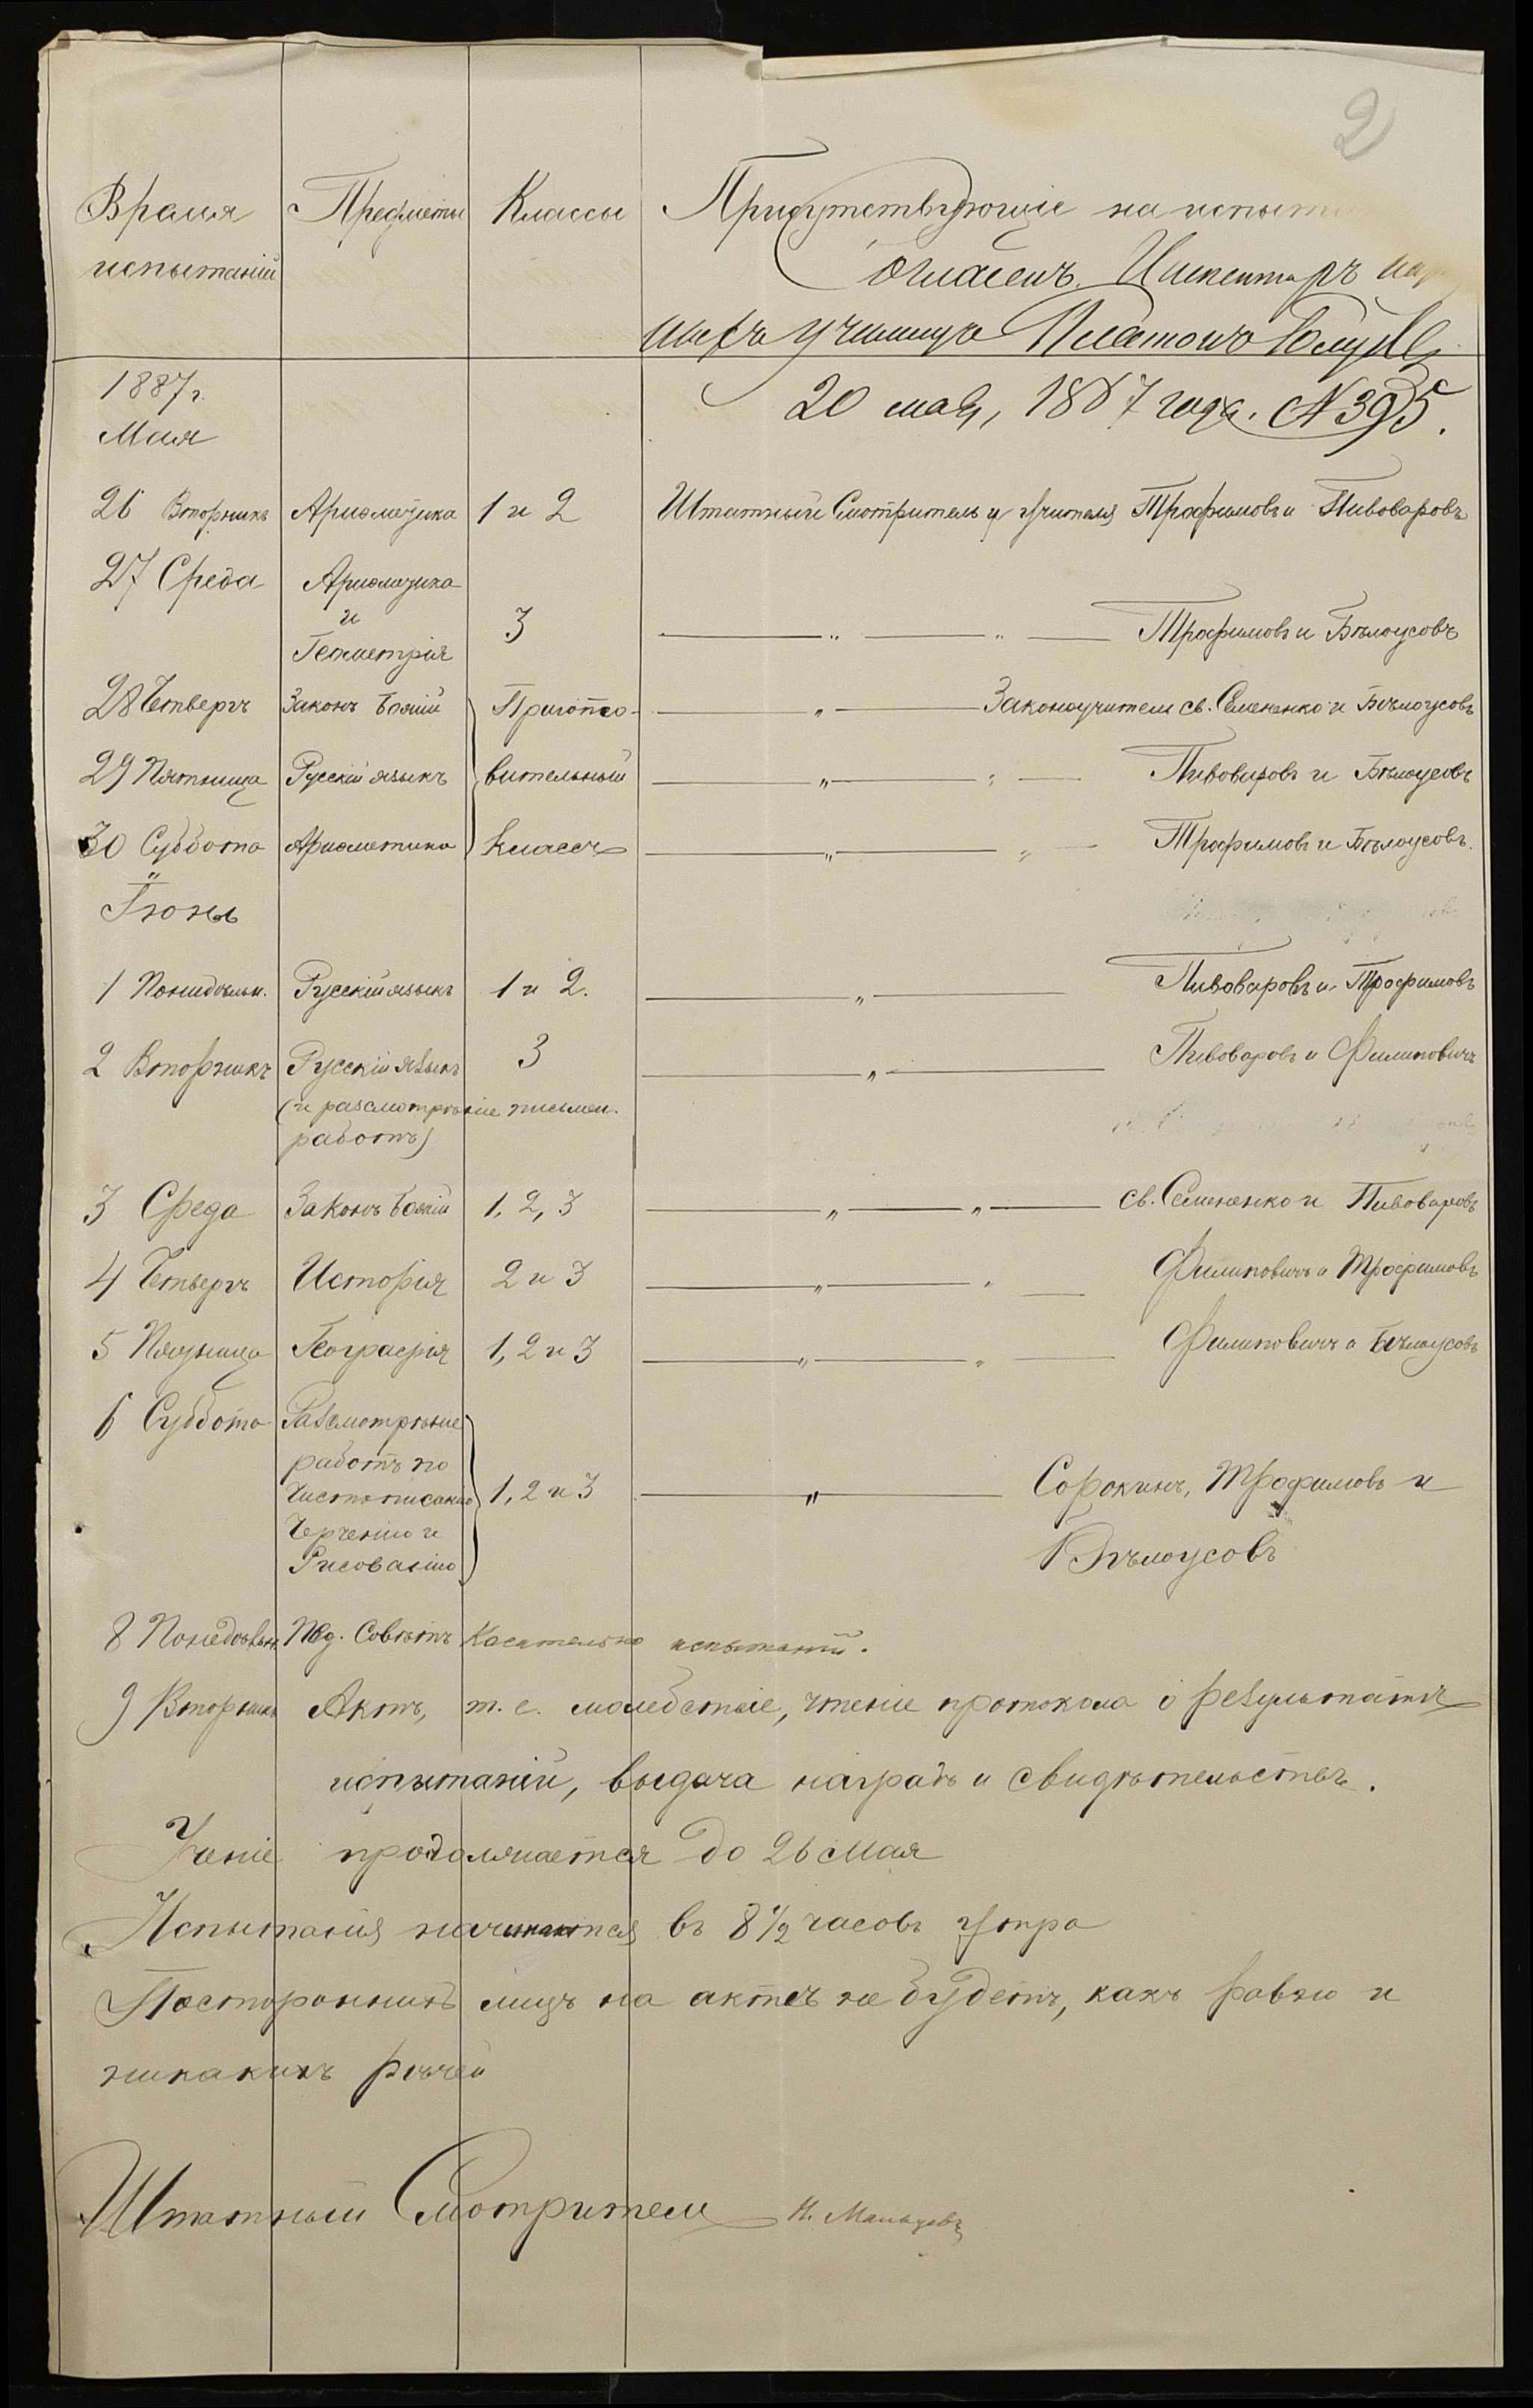 2
Время Предметы Классы Присутствующіе на
испытаній Согласенъ. Инспекторъ
ныхъ училищъ Платонъ
1887 г. 20 мая, 1887 года. № 395.
Мая
26 Вторникъ Ариѳметика 1 и 2 Штатный Смотритель и учителя Трофимовъ и Пивоваровъ
27 Среда Ариѳметика
и 3 — „ — „ — Трофимовъ и Бѣлоусовъ
Геометрія
28 Четвергъ Законъ Божій Пригото- — „ — Законоучитель св. Семененко и Бѣлоусовъ
29 Пятница Русскій языкъ вительный — „ — „ — Пивоваровъ и Бѣлоусовъ
30 Суббота Ариѳметика классъ — „ — „ — Трофимовъ и Бѣлоусовъ.
Іюнь
1 Понедѣльн. Русскій языкъ 1 и 2. — „ — Пивоваровъ и Трофимовъ
2 Вторникъ Русскій языкъ 3 — „ — Пивоваровъ и Филиповичъ
(и разсмотрѣніе письмен.
работъ)
3 Среда Законъ Божій 1, 2, 3 — „ — „ — св. Семененко и Пивоваровъ
4 Четвергъ Исторія 2 и 3 — „ — „ — Филиповичъ и Трофимовъ
5 Пятница Географія 1, 2 и 3 — „ — „ — Филиповичъ и Бѣлоусовъ
6 Суббота Разсмотрѣніе
работъ по
Чистописанію 1, 2 и 3 — „ — Сорокинъ, Трофимовъ и
Черченію и
Рисованію Бѣлоусовъ
8 Понедѣльн. Пед. Совѣтъ касательно испытаній.
9 Вторникъ Актъ, т. е. молебствіе, чтеніе протокола о результатѣ
испытаній, выдача наградъ и свидѣтельствъ.
Ученіе продолжается до 26 Мая
Испытанія начинаются въ 8 ½ часовъ утра
Постороннихъ лицъ на актѣ не будетъ, какъ равно и
никакихъ рѣчей
Штатный Смотритель Н. Мальцевъ